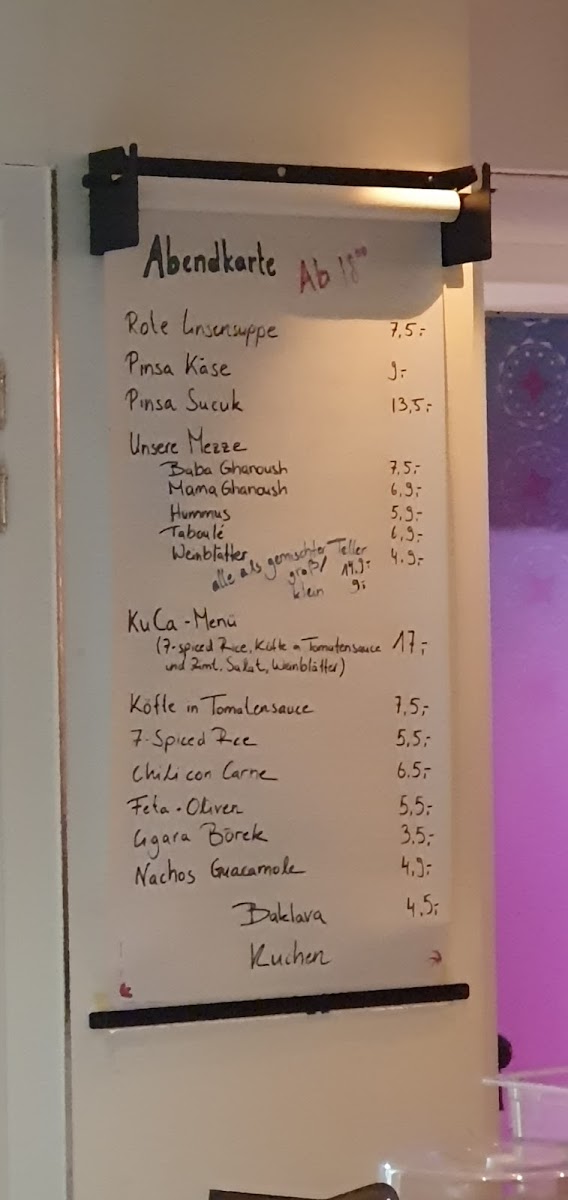 Abendkarte Ab 18⁰⁰
Rote Linsensuppe 7,5,-
Pinsa Käse 9,-
Pinsa Sucuk 13,5,-
Unsere Mezze
Baba Ghanoush 7,5,-
Mama Ghanoush 6,9,-
Hummus 5,9,-
Taboulé 6,9,-
Weinblätter 4,9,-
alle als gemischter Teller
groß/ 14,9,-
klein 9,-
KuCa-Menü 17,-
(7-spiced Rice, Köfte in Tomatensauce
und Zimt, Salat, Weinblätter)
Köfte in Tomatensauce 7,5,-
7-Spiced Rice 5,5,-
Chili con Carne 6,5,-
Feta-Oliven 5,5,-
Cigara Börek 3,5,-
Nachos Guacamole 4,9,-
Baklava 4,5,-
Kuchen